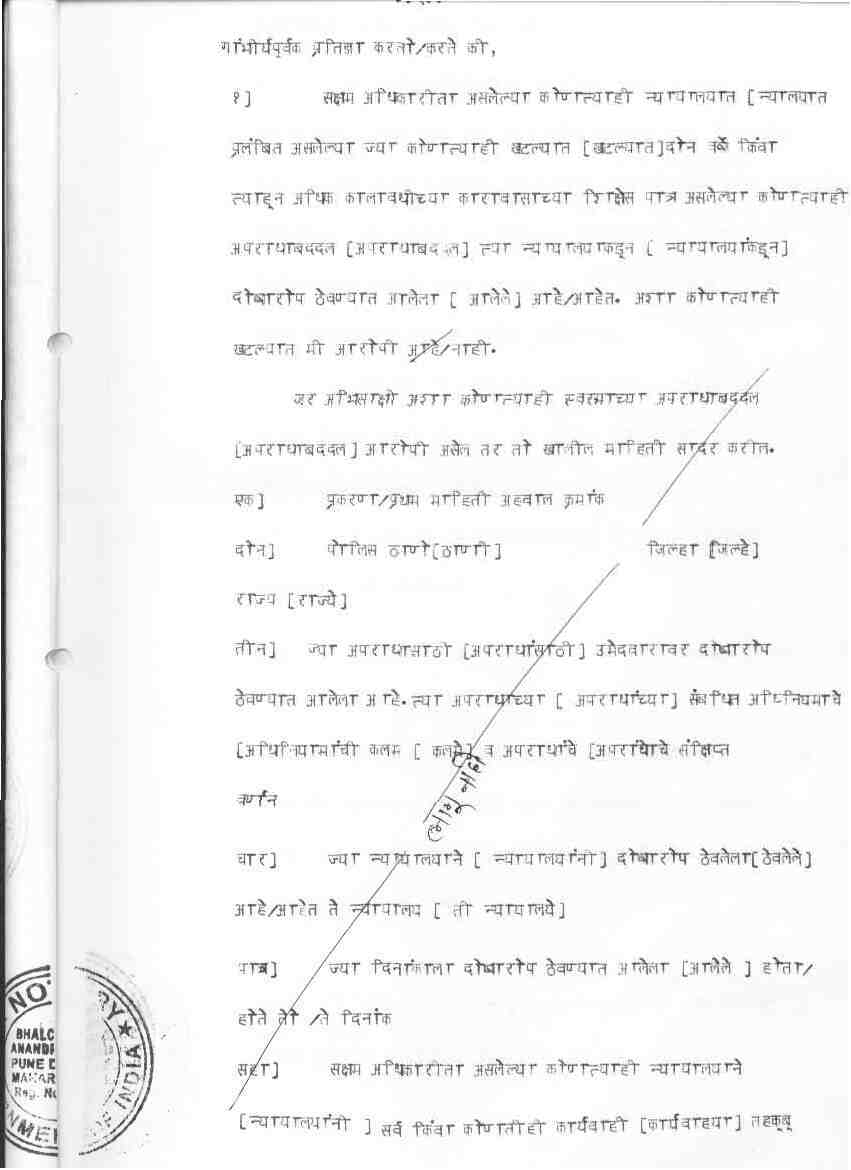 गांभीर्यपूर्वक प्रतिज्ञा करतो/करते की,
१] सक्षम अधिकारीता असलेल्या कोणत्याही न्यायालयात [ न्यालयात
प्रलंबित असलेल्या ज्या कोणत्याही खटल्यात [खटल्यात]दोन वर्षे किंवा
त्याहून अधिक कालावधीच्या कारावासाच्या शिक्षेस पात्र असलेल्या कोणत्याही
अपराधाबददल [अपराधाबददल] त्या न्यायालयाकडून [ न्यायालयांकडून]
दोषारोप ठेवण्यात आलेला [ आलेले] आहे/आहेत. अशा कोणत्याही
खटल्यात मी आरोपी आहे/नाही.
जर अभिसाक्षी अशा कोणत्याही स्वरुपाच्या अपराधाबददल
[अपराधाबददल] आरोपी असेल तर तो खालील माहिती सादर करील.
एक] प्रकरण/प्रथम माहिती अहवाल क्रमांक
दोन] पोलिस ठाणे[ठाणी] जिल्हा [जिल्हे]
राज्य [राज्ये]
तीन] ज्या अपराधासाठी [अपराधांसाठी] उमेदवारावर दोषारोप
ठेवण्यात आलेला आहे. त्या अपराधाच्या [ अपराधांच्या] संबधित अधिनियमाचे
[अधिनियामांची कलम [ कलमे] व अपराधांचे [अपराधाचे संक्षिप्त
वर्णन
लागू नाही
चार] ज्या न्यायालयाने [ न्यायालयांनी] दोषारोप ठेवलेला[ठेवलेले]
आहे/आहेत ते न्यायालय [ ती न्यायालये]
पाच] ज्या दिनांकाला दोषारोप ठेवण्यात आलेला [आलेले ] होता/
होते तो /ते दिनांक
सहा] सक्षम अधिकारीता असलेल्या कोणत्याही न्यायालयाने
[न्यायालयांनी ] सर्व किंवा कोणतीही कार्यवाही [कार्यवाहया] तहकूब
NO.
BHALC
ANAND
PUNE D
MAHAR
Reg. No
RY
OF INDIA
NME